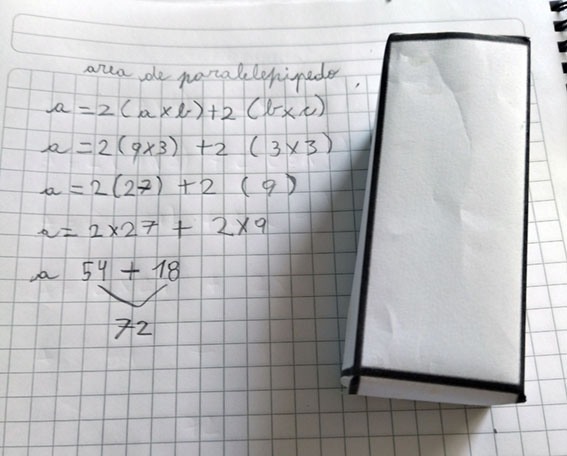 area de paralelepipedo
a = 2 (a x b) + 2 (b x c)
a = 2 (9x3) + 2 (3x3)
a = 2(27) + 2 (9)
a = 2x27 + 2x9
a 54 + 18
72